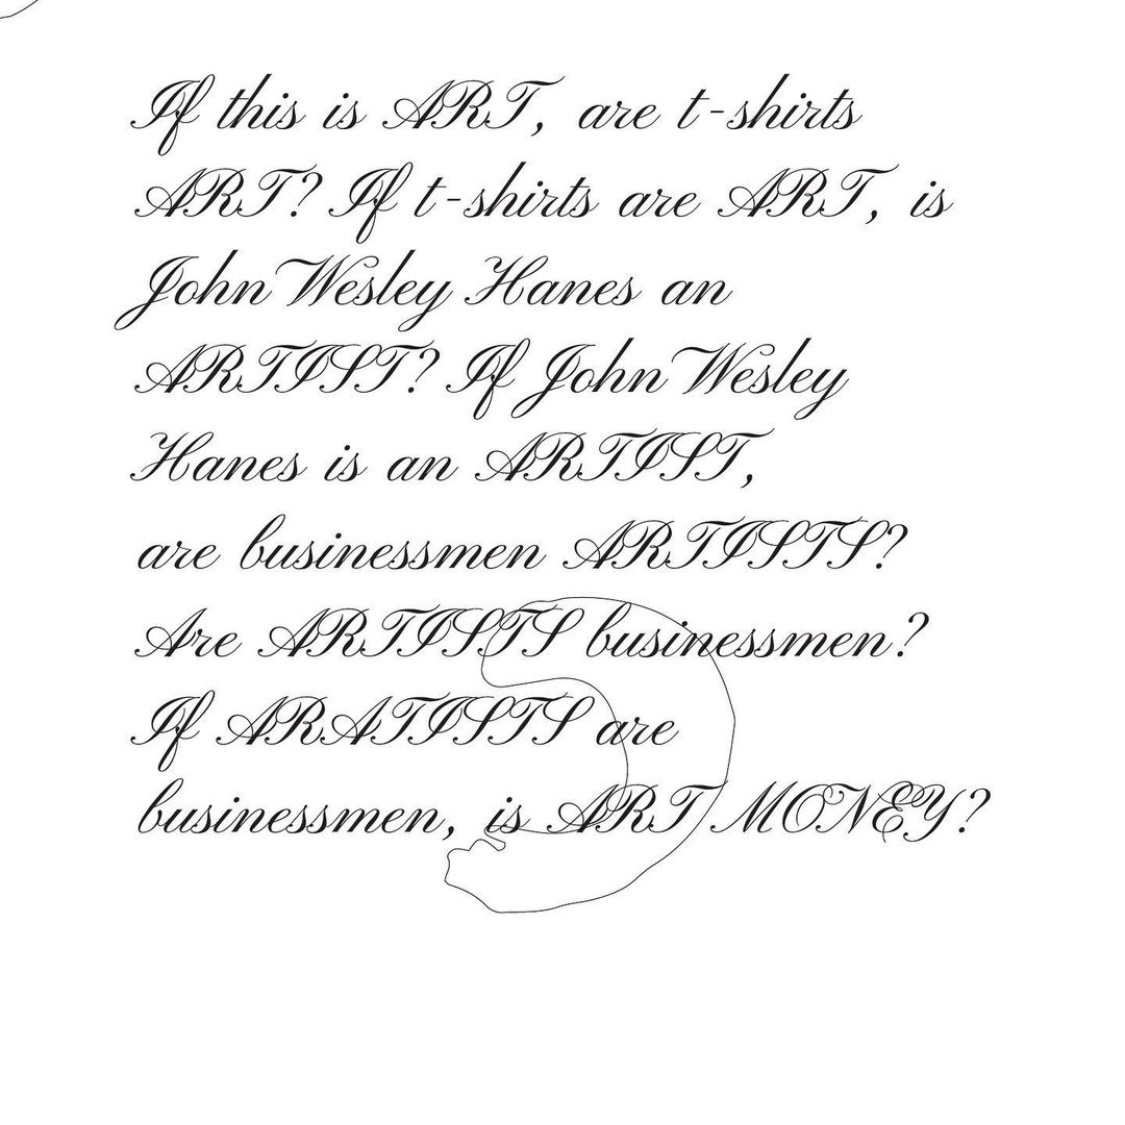 If this is ART, are t-shirts
ART? If t-shirts are ART, is
John Wesley Hanes an
ARTIST? If John Wesley
Hanes is an ARTIST,
are businessmen ARTISTS?
Are ARTISTS businessmen?
If ARATISTS are
businessmen, is ART MONEY?